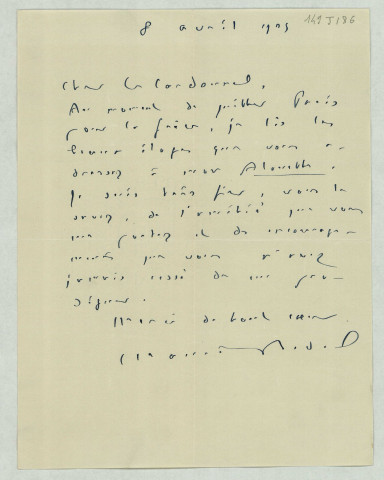 8 avril 1925
149 J 186
Cher Le Cardonnel,
Au moment de quitter Paris
pour la , je lis les
beaux éloges que vous a-
dressez à mon Alouette.
Je suis très fier, vous le
savez, de l'amitié que vous
me portez et de encourage-
ments que vous n'avez
jamais cessé de me pro-
diguer.
Merci de tout cœur.